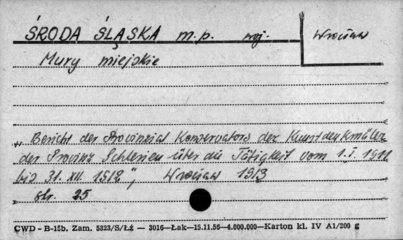 ŚRODA ŚLĄSKA m.p. woj. Wrocław
Mury miejskie
„Bericht der Provinzial Konservators der Kunstdenkmäler
der Provinz Schlesien über die Tätigkeit vom 1.I.1911
bis 31.XII.1912", Wrocław 1913
str. 25
CWD - B-15b. Zam. 5323/S/Łż — 3016—Łak—15.11.56—4.000.000—Karton kl. IV A1/200 g